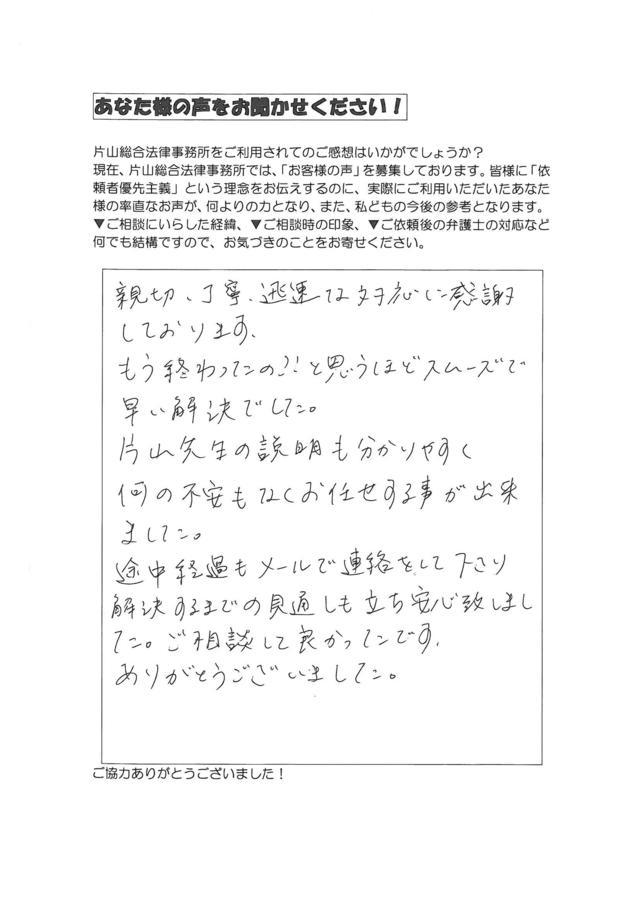 あなた様の声をお聞かせください！
片山総合法律事務所をご利用されてのご感想はいかがでしょうか？
現在、片山総合法律事務所では、「お客様の声」を募集しております。皆様に「依
頼者優先主義」という理念をお伝えするのに、実際にご利用いただいたあなた
様の率直なお声が、何よりの力となり、また、私どもの今後の参考となります。
▼ご相談にいらした経緯、▼ご相談時の印象、▼ご依頼後の弁護士の対応など
何でも結構ですので、お気づきのことをお寄せください。
親切、丁寧、迅速な対応に感謝
しております。
もう終わったの?!と思うほどスムーズで
早い解決でした。
片山先生の説明も分かりやすく
何の不安もなくお任せする事が出来
ました。
途中経過もメールで連絡をして下さり
解決するまでの見通しも立ち安心致しまし
た。ご相談して良かったです。
ありがとうございました。
ご協力ありがとうございました！